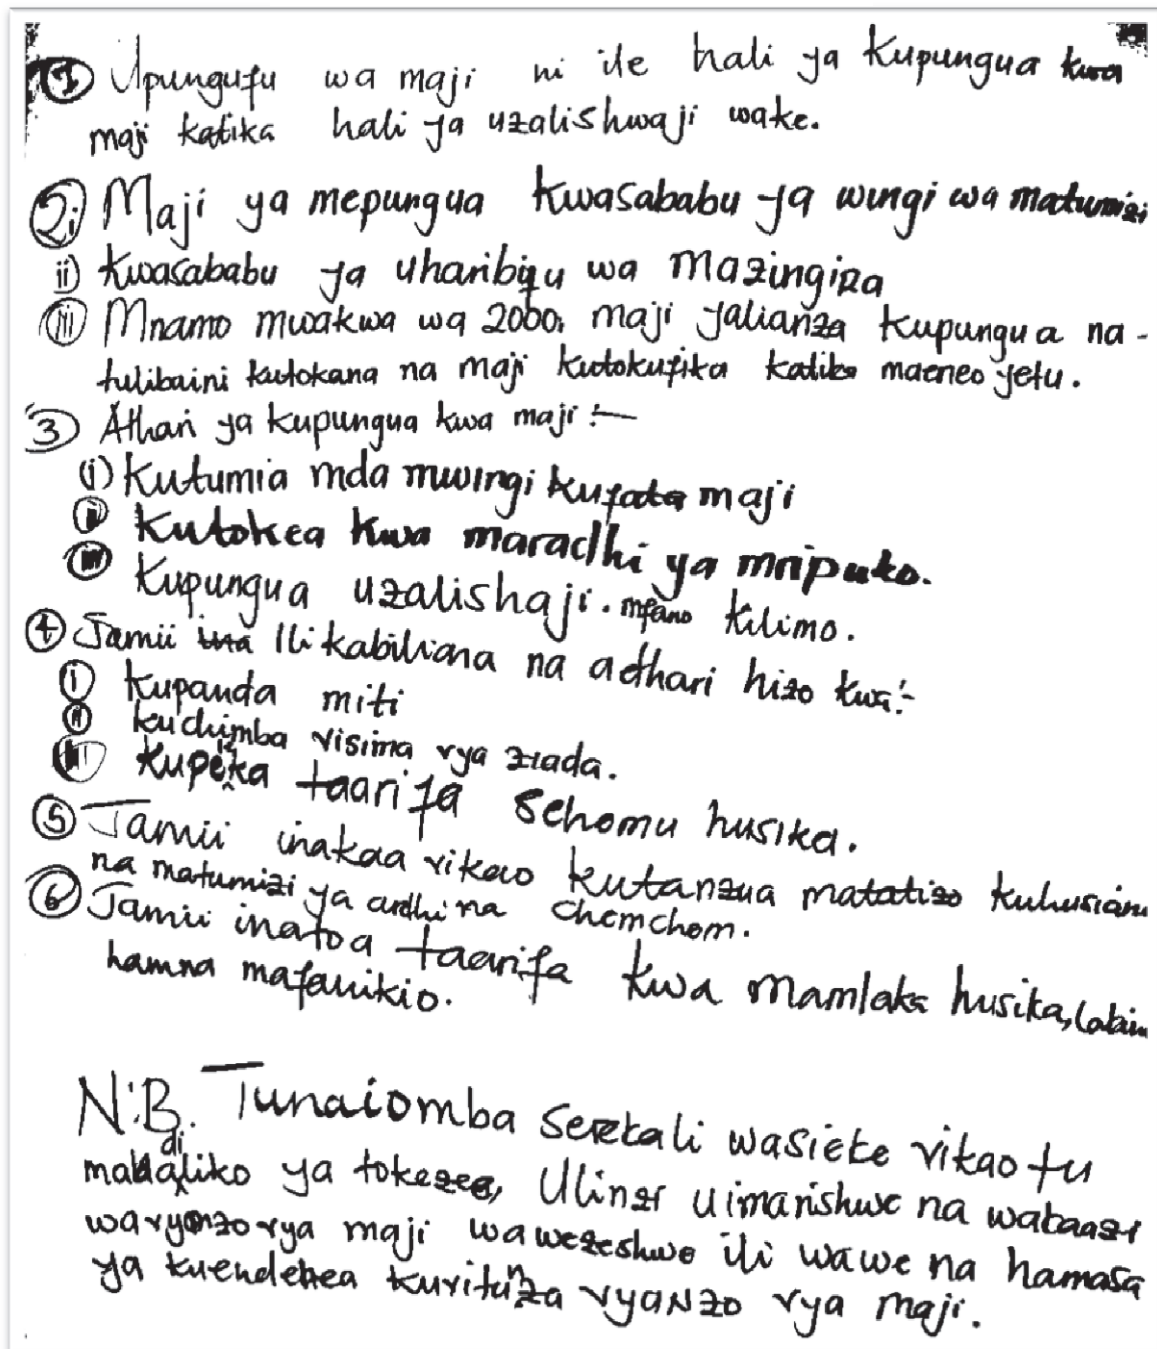 ① Upungufu wa maji ni ile hali ya kupungua kwa
maji katika hali ya uzalishwaji wake.
② i) Maji ya mepungua kwasababu ya wingi wa matumizi
ii) kwasababu ya uharibifu wa mazingira
iii) Mnamo mwakwa wa 2000, maji yalianza kupungua na -
tulibaini kutokana na maji kutokufika katika maeneo yetu.
③ Athari ya kupungua kwa maji :-
(i) Kutumia mda mwingi kufata maji
ii Kutokea kwa maradhi ya mripuko.
iii Kupungua uzalishaji. mfano kilimo.
④ Jamii ina Ilikabiliana na adhari hizo kwa:-
i Kupanda miti
ii kuchimba visima vya ziada.
iii Kupeleka taarifa sehomu husika.
⑤ Jamii inakaa vikao kutanzua matatizo
na matumizi ya ardhi na chemchem.
⑥ Jamii inatoa taarifa kwa mamlaka husika,
hamna mafanikio.
N:B. Tunaiomba serekali wasieke vikao tu
madaliko ya tokezee, Ulinzi uimarishwe na wakaazi
wavyanzo vya maji wawezeshwe ili wawe na hamasa
ya kuendelea kuvitunza vyaNzo vya maji.